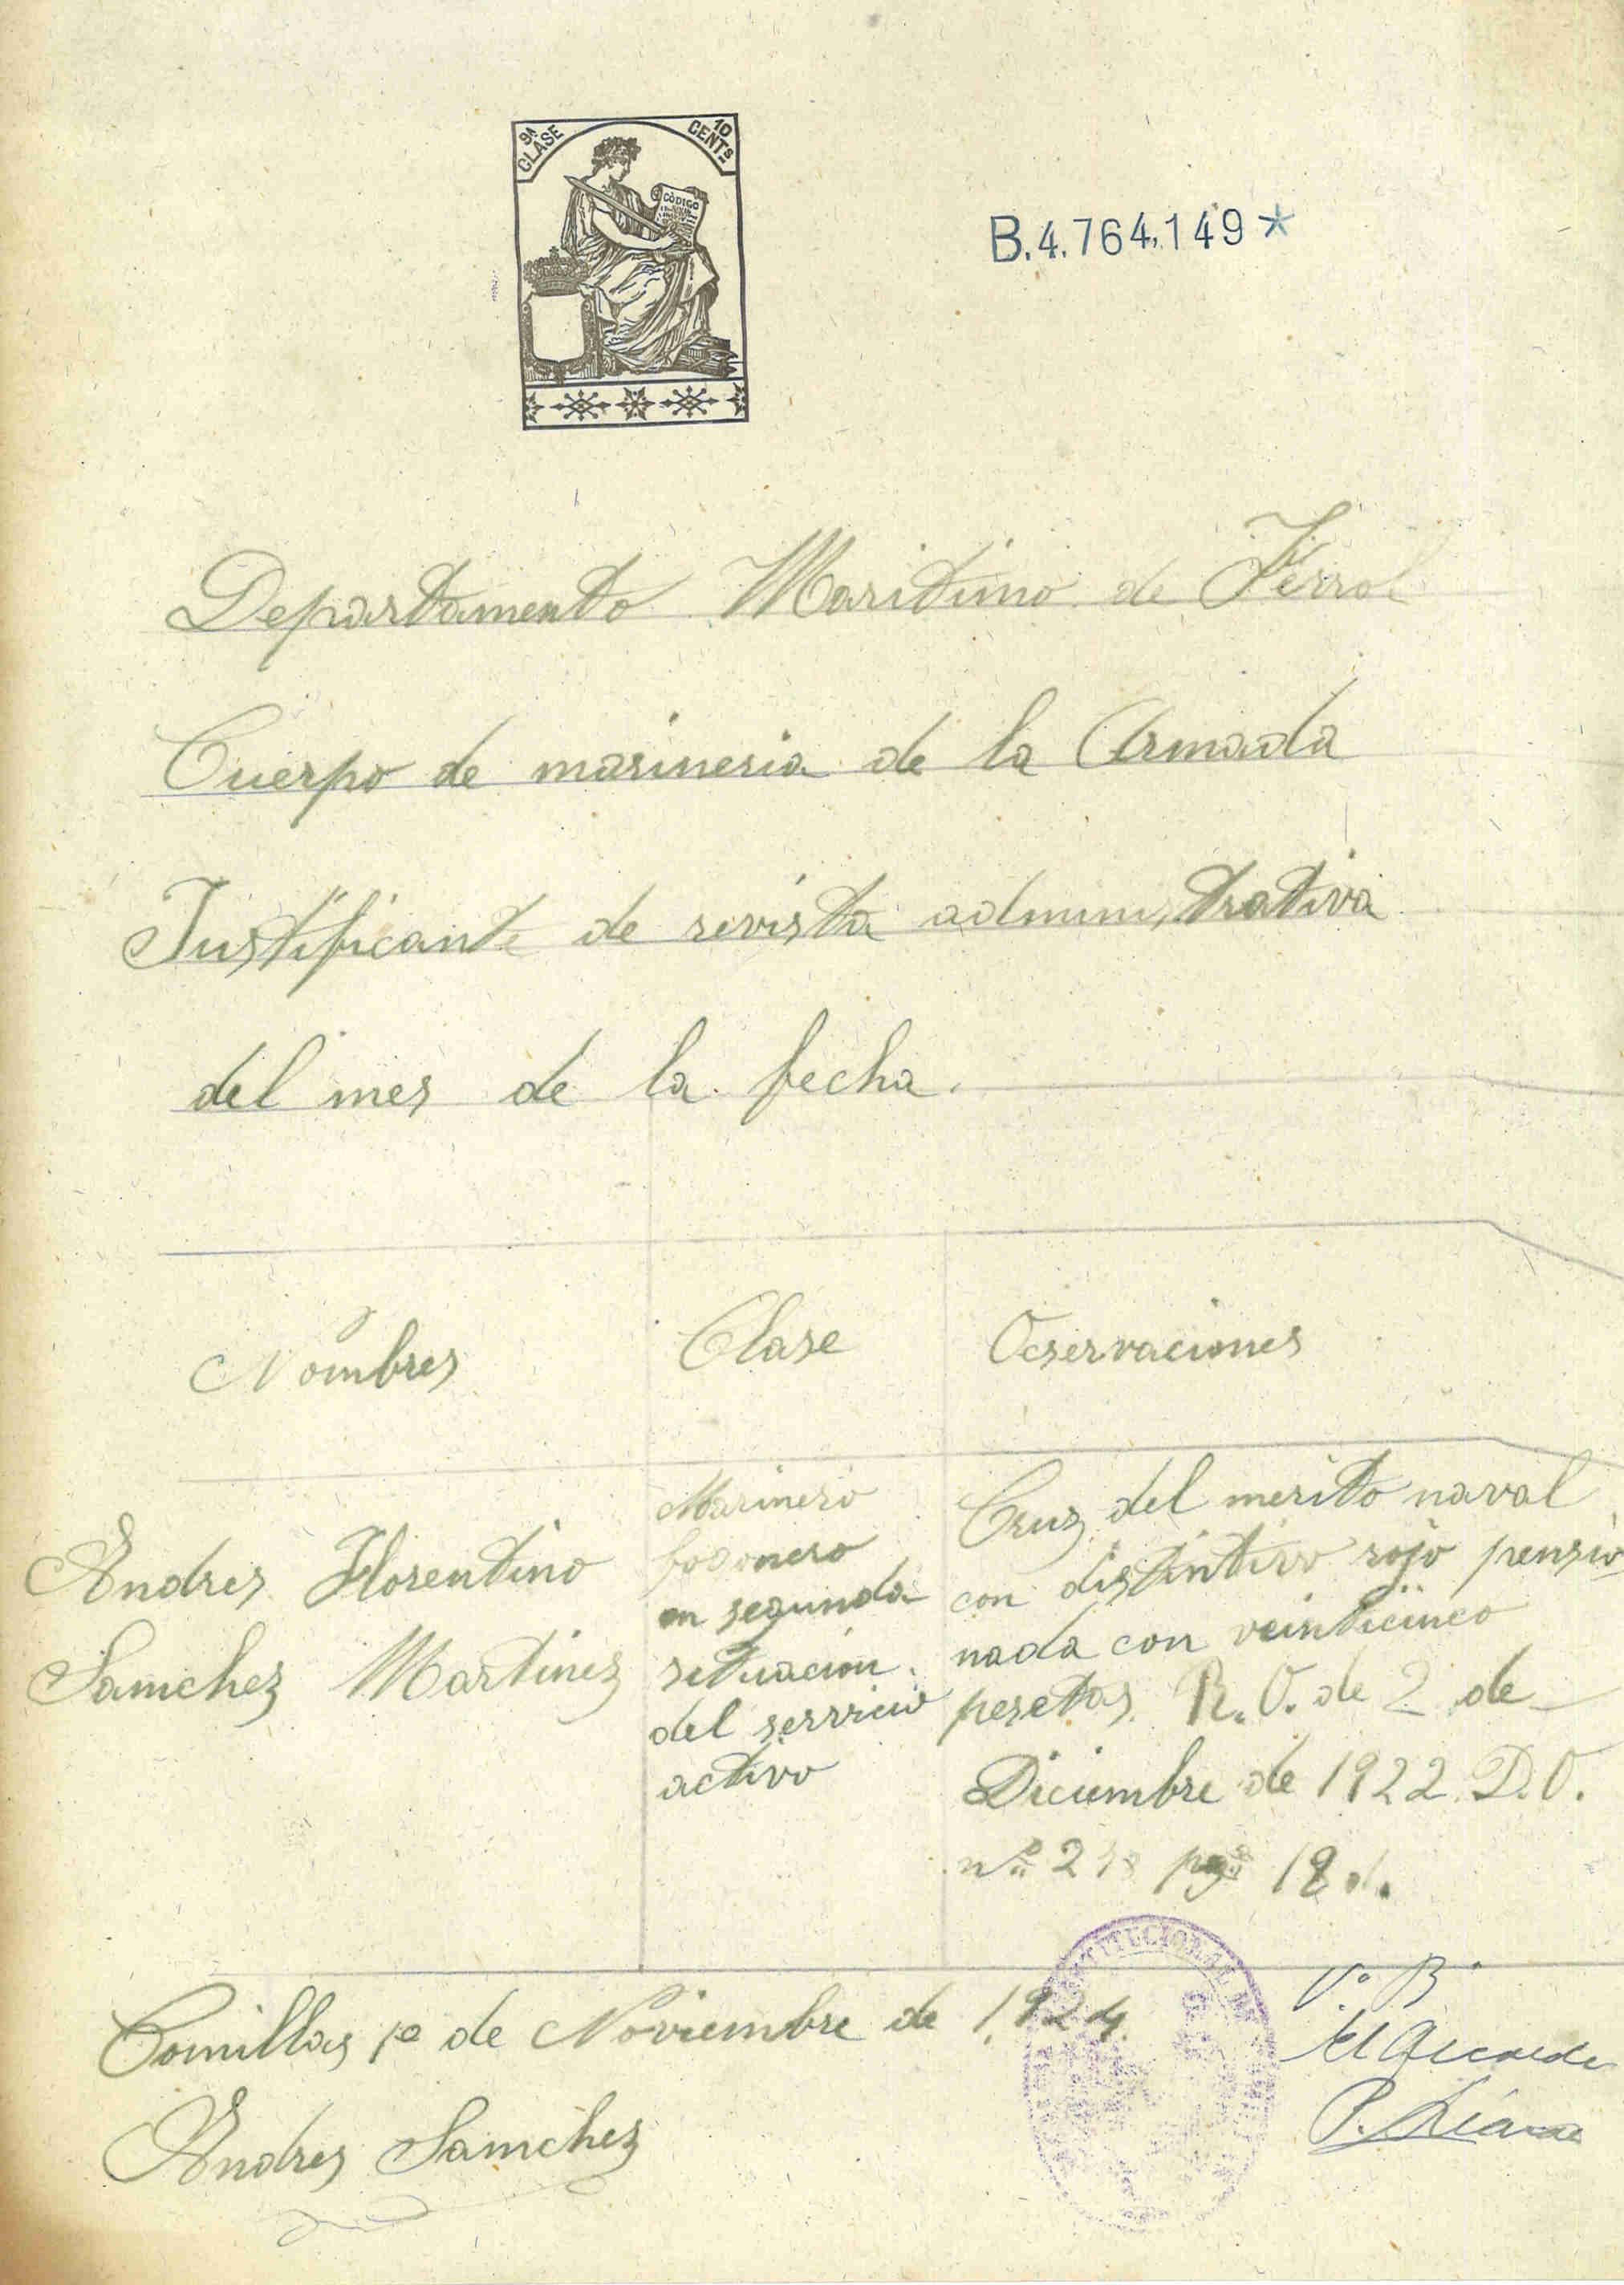 9ª CLASE
10 CENTS
CÓDIGO
B.4.764.149*
Departamento Maritimo de Ferrol
Cuerpo de marineria de la Armada
Justificante de revista administrativa
del mes de la fecha.
Nombres
Clase
Ocservaciones
Andres Florentino
Samchez Martinez
Marinero
fogonero
en segunda
setuacion
del servicio
activo
Cruz del merito naval
con distintivo rojo pensio
nada con veinticinco
pesetas. R.O. de 2 de
Diciembre de 1922. D.O.
nº 2 pgª 18
Comillas 1º de Noviembre de 1.924.
Andres Samchez
Vº Bº
El Alcalde
P.